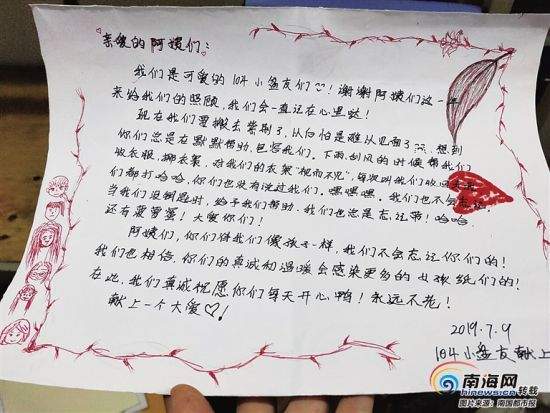 亲爱的阿姨们：
我们是可爱的104小盆友们！谢谢阿姨们这一年
来给我们的照顾，我们会一直记在心里哒！
现在我们要搬去紫荆了，从向怕是难以见面了，想到
你们总是在默默帮助、包容我们。下雨、刮风的时候帮我们
收衣服、挪衣架，对我们的衣架“视而不见”，每次叫我们收回去
们都打哈哈，你们也没有说过我们。嘿嘿嘿。我们也不会忘记
当我们没制造时，给予我们帮助。我们也总是忘记带！哈哈，
还有爱警警！大爱你们！
阿姨们，你们待我们像孩子一样，我们不会忘记你们的！
我们也相信，你们的真诚和温暖会感染更多的女孩纸们的！
在此，我们真诚祝愿你们每天开心鸭！永远不老！
献上一个大爱！
2019.7.9
104小盆友献上
南海网
hinews.cn 转载
图片来源：南国都市报